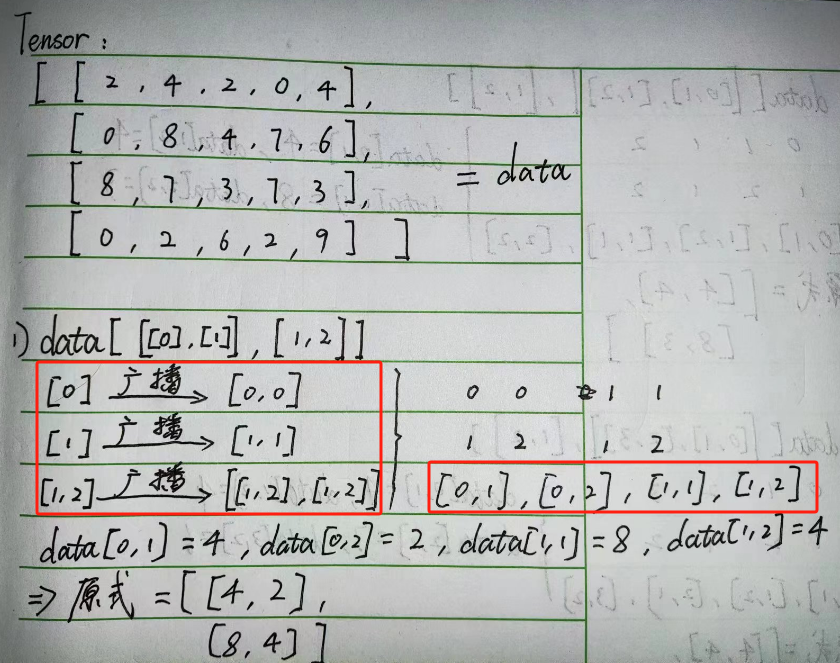 Tensor:
[ [ 2, 4, 2, 0, 4],
[ 0, 8, 4, 7, 6],
[ 8, 7, 3, 7, 3],
= data
[ 0, 2, 6, 2, 9] ]
1) data[ [[0],[1]], [1,2]]
[0] 广播 [0,0]
0 0 1 1
[1] 广播 [1,1]
1 2 1 2
[1,2] 广播 [[1,2],[1,2]]
[0,1],[0,2],[1,1],[1,2]
data[0,1]=4, data[0,2]=2, data[1,1]=8, data[1,2]=4
⇒ 原式 = [ [4,2],
[8,4] ]